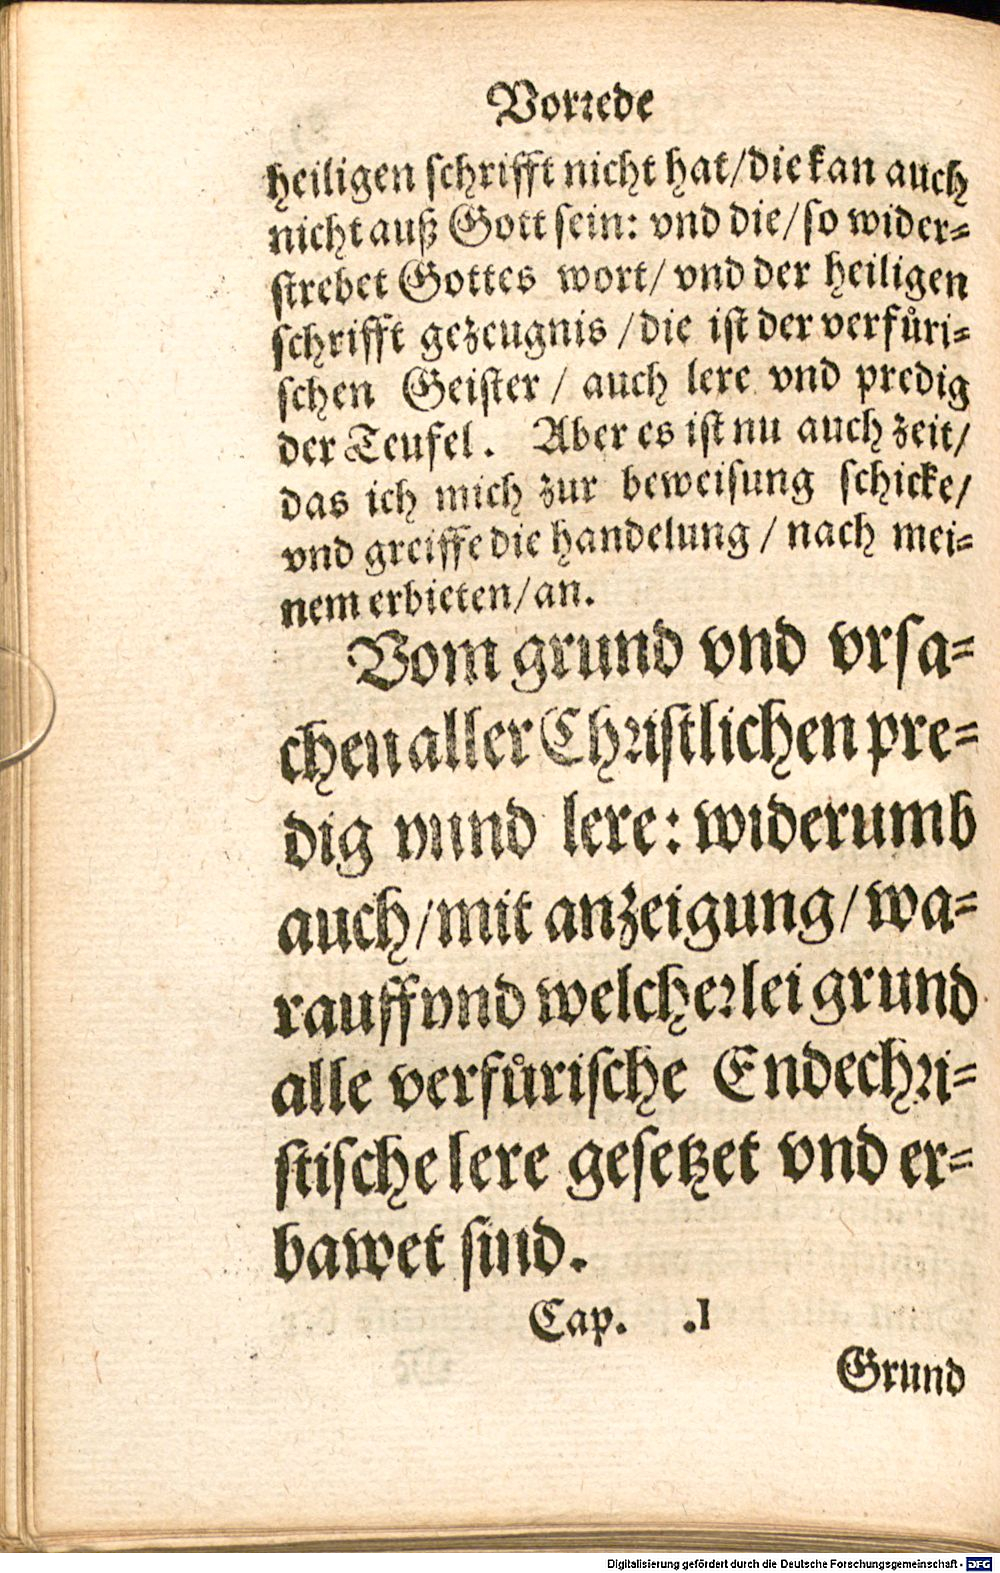 Vorrede
heiligen schrifft nicht hat/die kan auch
nicht auß Gott sein: vnd die/so wider-
strebet Gottes wort/ vnd der heiligen
schrifft gezeugnis /die ist der verfůri-
schen Geister / auch lere vnd predig
der Teufel. Aber es ist nu auch zeit/
das ich mich zur beweisung schicke/
vnd greiffe die handelung / nach mei-
nem erbieten/an.
Vom grund vnd vrsa-
chen aller Christlichen pre-
dig vnnd lere: widerumb
auch/mit anzeigung/wa-
rauff vnd welcherlei grund
alle verfůrische Endechri-
stische lere gesetzet vnd er-
bawet sind.
Cap. .I
Grund
Digitalisierung gefördert durch die Deutsche Forschungsgemeinschaft - DFG